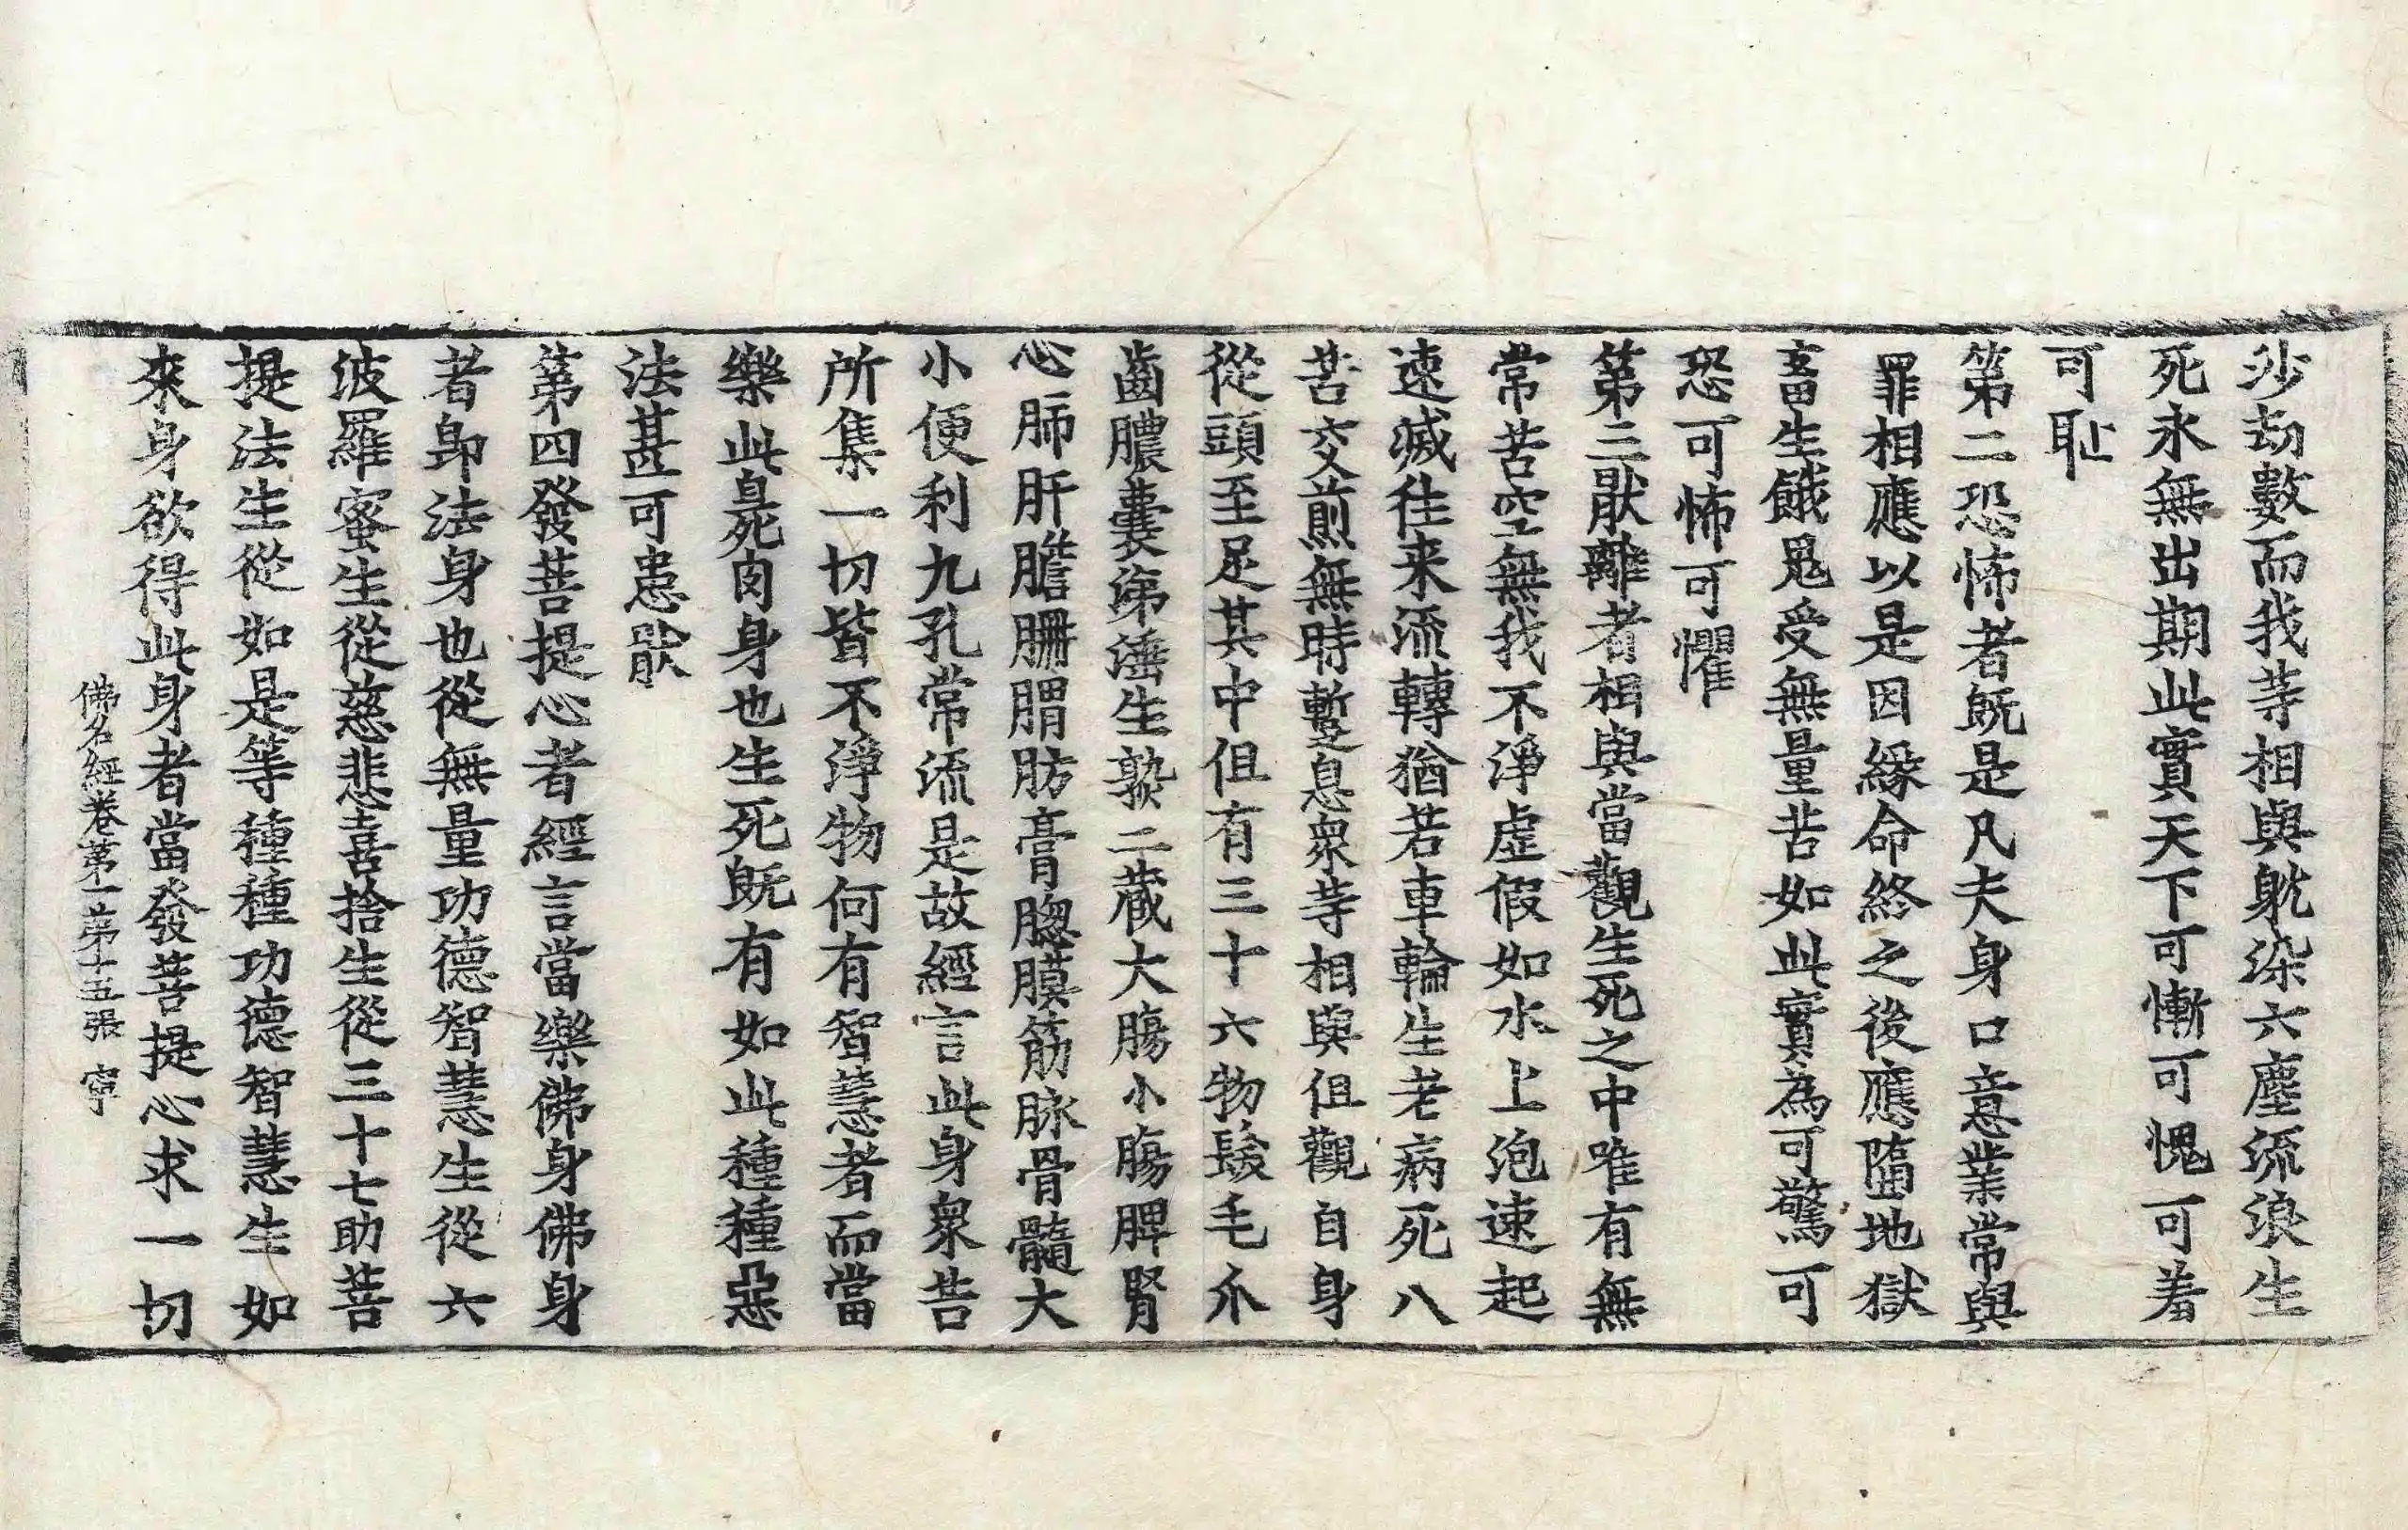 沙劫數而我等相與躭染六塵流浪生
死永無出期此實天下可慚可愧可羞
可耻
第二恐怖者既是凡夫身口意業常與
罪相應以是因緣命終之後應墮地獄
畜生餓鬼受無量苦如此實為可驚可
恐可怖可懼
第三猒離者相與當觀生死之中唯有無
常苦空無我不淨虛假如水上泡速起
速滅往来流轉猶若車輪生老病死八
苦交煎無時蹔息衆等相與但觀自身
從頭至足其中但有三十六物髮毛爪
齒膿囊涕唾生熟二藏大腸小腸脾腎
心肺肝膽𦙱胃肪膏膓膜筋脉骨髓大
小便利九孔常流是故經言此身衆苦
所集一切皆不淨物何有智慧者而當
樂此臰死肉身也生死既有如此種種惡
法甚可患猒
第四發菩提心者經言當樂佛身佛身
者即法身也從無量功德智慧生從六
波羅蜜生從慈悲喜捨生從三十七助菩
提法生從如是等種種功德智慧生如
來身欲得此身者當發菩提心求一切
佛名經卷第一第十五張 寧